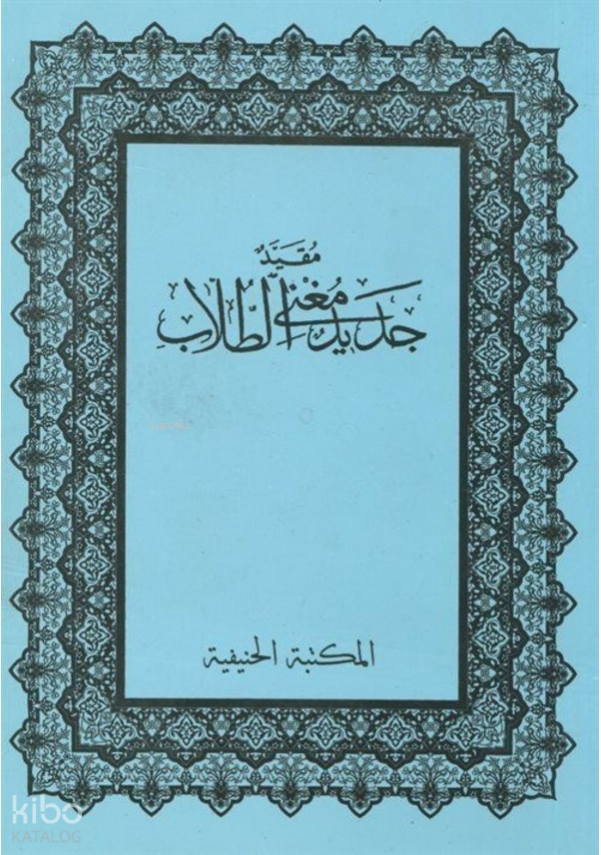 مُقَيَّدْ
جَدِيد مُغْنِي الطُّلَّاب
المكتبة الحنيفية
kibo
KATALOG